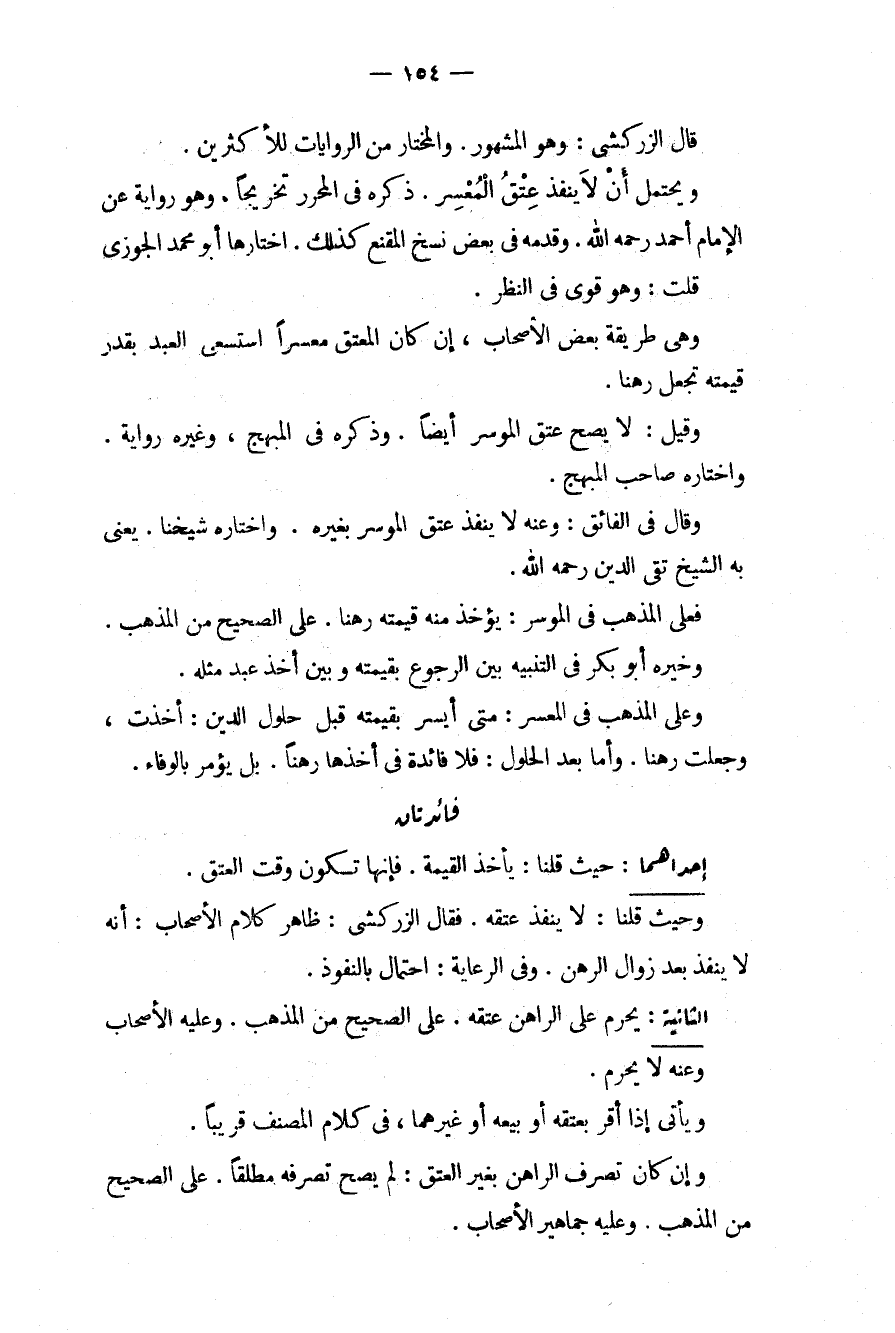 — ١٥٤ —
قال الزركشى : وهو المشهور . والمختار من الروايات للأكثرين .
ويحتمل أَنْ لاَ ينفذ عِتْقُ الْمُعْسِر . ذكره فى المحرر تخريجاً . وهو رواية عن
الإمام أحمد رحمه الله . وقدمه فى بعض نسخ المقنع كذلك . اختارها أبو محمد الجوزى
قلت : وهو قوى فى النظر .
وهى طريقة بعض الأصحاب ، إن كان المعتق معسراً استسعى العبد بقدر
قيمته تجعل رهنا .
وقيل : لا يصح عتق الموسر أيضاً . وذكره فى المبهج ، وغيره رواية .
واختاره صاحب المبهج .
وقال فى الفائق : وعنه لا ينفذ عتق الموسر بغيره . واختاره شيخنا . يعنى
به الشيخ تقى الدين رحمه الله .
فعلى المذهب فى الموسر : يؤخذ منه قيمته رهنا . على الصحيح من المذهب .
وخيره أبو بكر فى التنبيه بين الرجوع بقيمته وبين أخذ عبد مثله .
وعلى المذهب فى المعسر : متى أيسر بقيمته قبل حلول الدين : أخذت ،
وجعلت رهنا . وأما بعد الحلول : فلا فائدة فى أخذها رهناً . بل يؤمر بالوفاء .
فائدتان
إحداهما : حيث قلنا : يأخذ القيمة . فإنها تكون وقت العتق .
وحيث قلنا : لا ينفذ عتقه . فقال الزركشى : ظاهر كلام الأصحاب : أنه
لا ينفذ بعد زوال الرهن . وفى الرعاية : احتمال بالنفوذ .
الثانية : يحرم على الراهن عتقه . على الصحيح من المذهب . وعليه الأصحاب
وعنه لا يحرم .
ويأتى إذا أقر بعتقه أو بيعه أو غيرهما ، فى كلام المصنف قريباً .
وإن كان تصرف الراهن بغير العتق : لم يصح تصرفه مطلقاً . على الصحيح
من المذهب . وعليه جماهير الأصحاب .